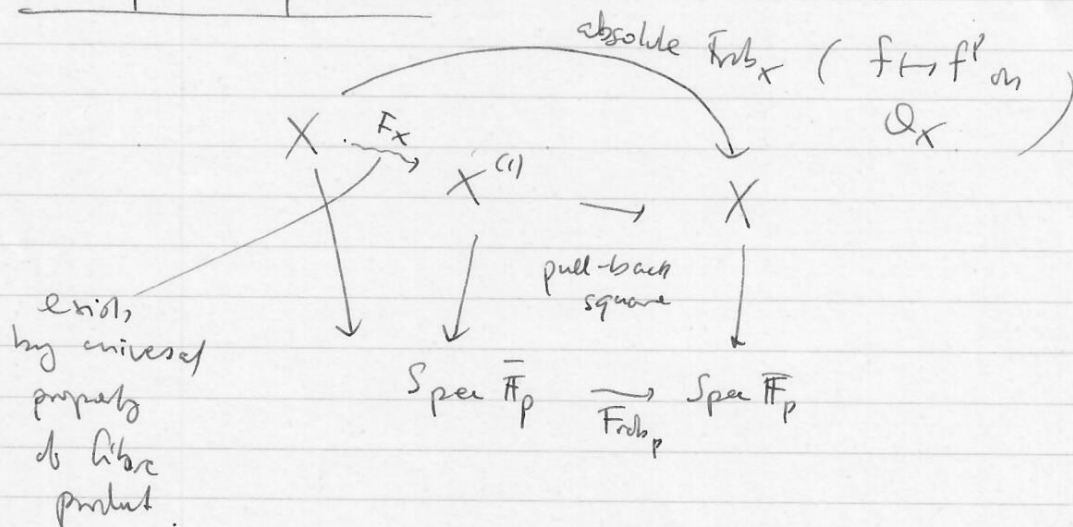 absolute Frob_X ( f ↦ f^p on
O_X )
X F_X X^(1) → X
pull-back
square
exists
by universal
property
of fibre
product.
Spec F̄_p → Spec F̄_p
Frob_p